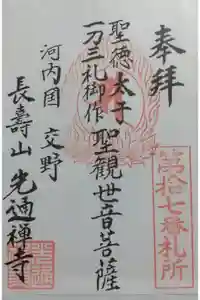 奉拝
第拾七番札所
聖徳太子
一刀三札御作聖観世音菩薩
河内国 交野
長壽山 光通禅寺